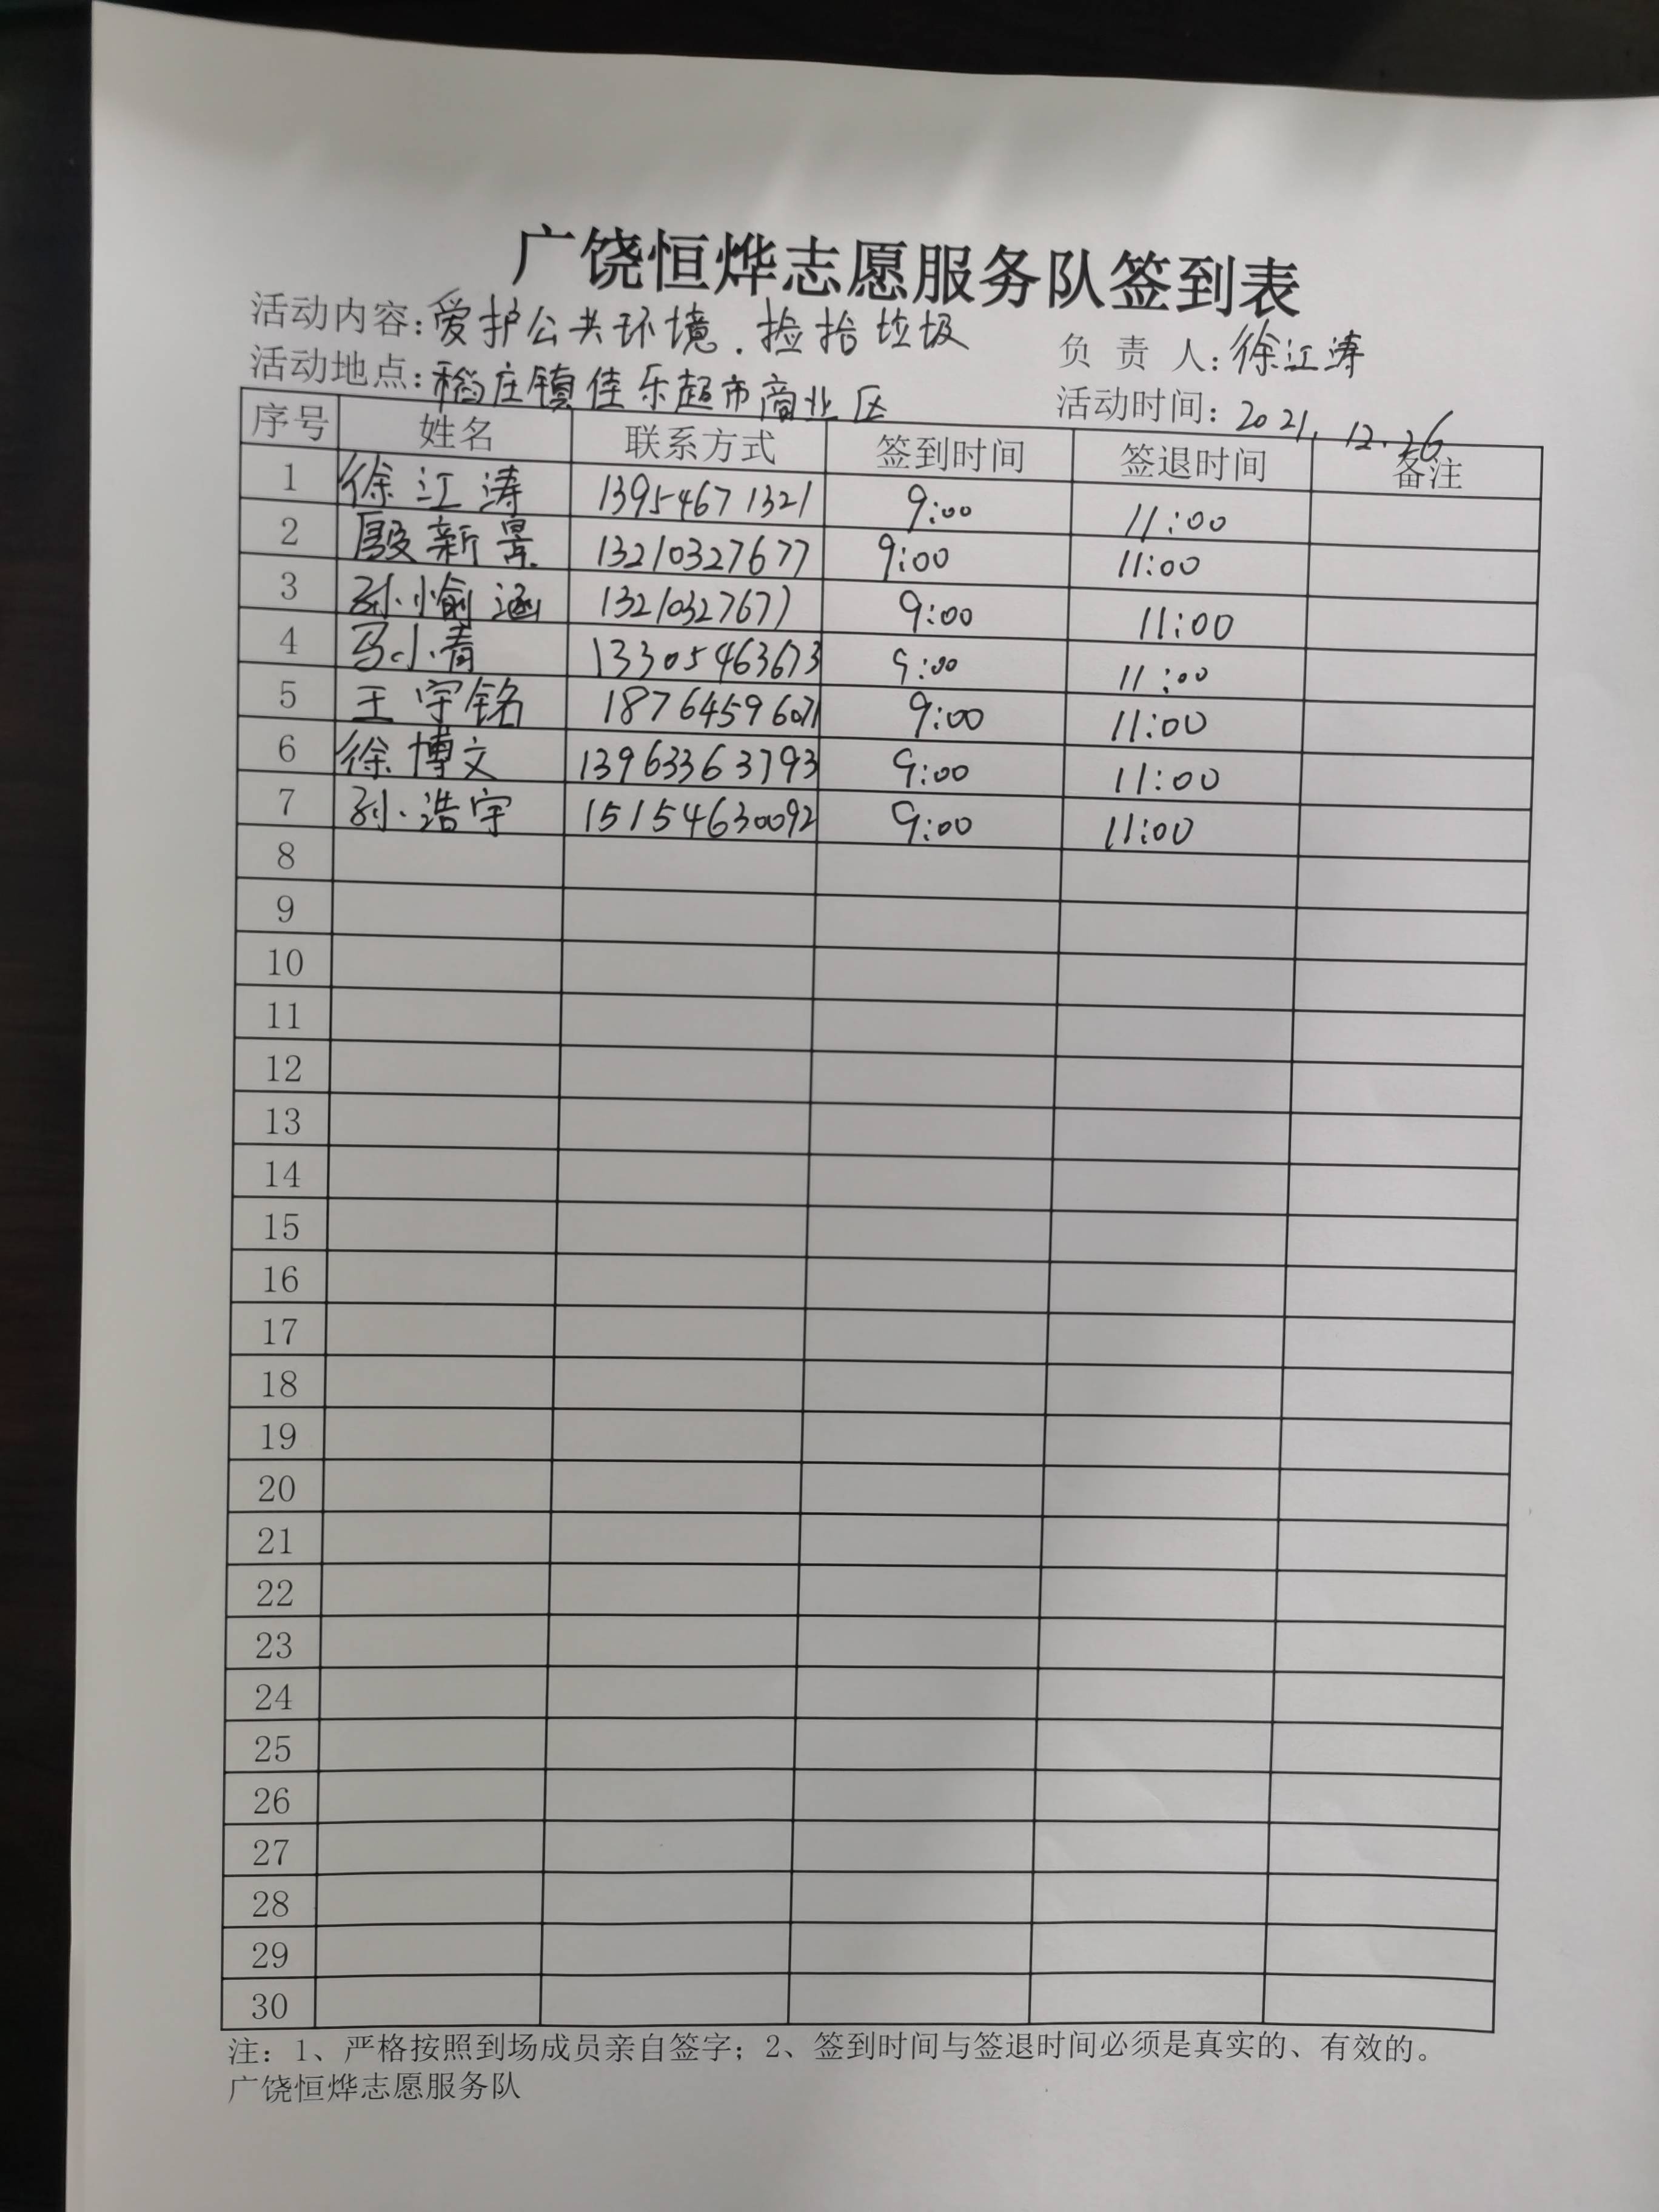 广饶恒烨志愿服务队签到表
活动内容:爱护公共环境.捡拾垃圾 负责人:徐江涛
活动地点:稻庄镇佳乐超市商业区 活动时间:2021.12.26
序号 姓名 联系方式 签到时间 签退时间 备注
1 徐江涛 13954671321 9:00 11:00
2 殷新景 13210327677 9:00 11:00
3 孙愉涵 13210327677 9:00 11:00
4 马小青 13305463673 9:00 11:00
5 王宇铭 18764596071 9:00 11:00
6 徐博文 13963363793 9:00 11:00
7 孙浩宇 15154630092 9:00 11:00
8
9
10
11
12
13
14
15
16
17
18
19
20
21
22
23
24
25
26
27
28
29
30
注：1、严格按照到场成员亲自签字；2、签到时间与签退时间必须是真实的、有效的。
广饶恒烨志愿服务队